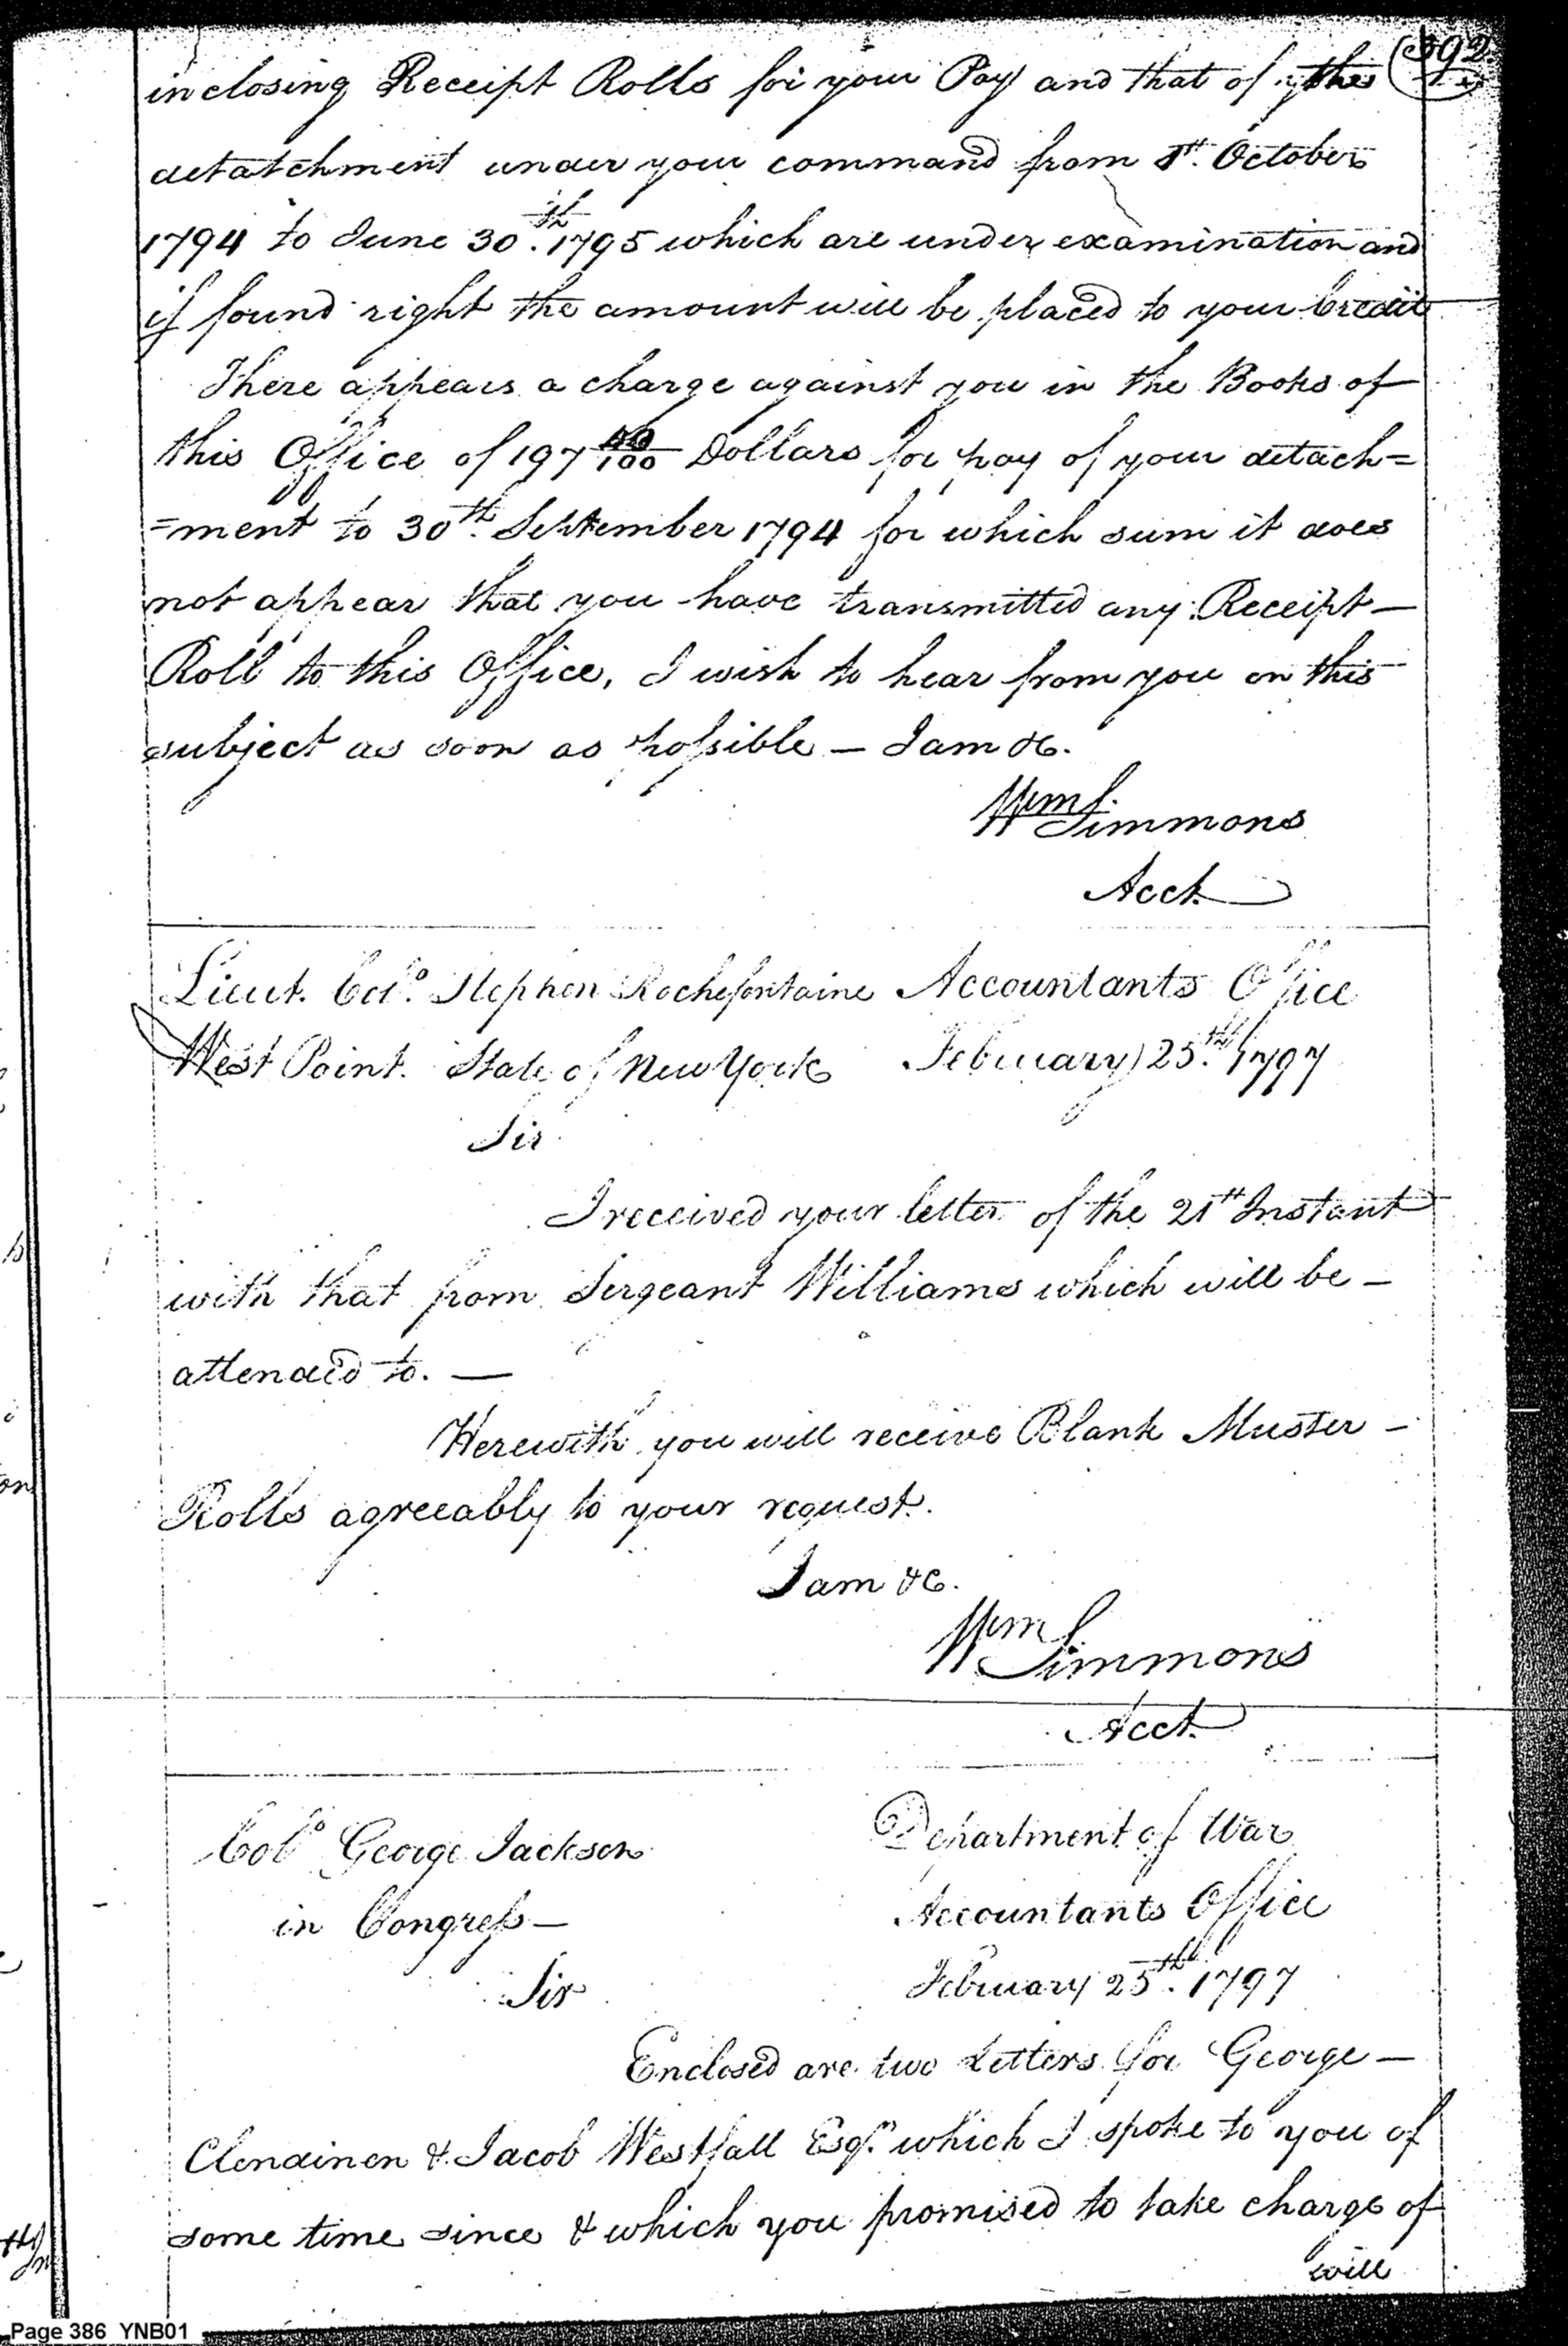 (392
inclosing Receipt Rolls for your Pay and that of the
detatchment under your command from 1st. October
1794 to June 30th. 1795 which are under examination and
if found right the amount will be placed to your Credit
There appears a charge against you in the Books of
this Office of 197 40/100 Dollars for pay of your detach=
=ment to 30th. September 1794 for which sum it does
not appear that you have transmitted any Receipt —
Roll to this Office, I wish to hear from you on this
subject as soon as possible — I am &c.
Wm Simmons
Acct.
Lieut. Colo. Stephen Rochefontaine Accountants Office
West Point. State of New York February 25th. 1797
Sir
I received your letter of the 21st Instant
with that from Sergeant Williams which will be —
attended to. —
Herewith you will receive Blank Muster —
Rolls agreeably to your request.
I am &c.
Wm Simmons
Acct.
Colo George Jackson Department of War
in Congress — Accountants Office
Sir February 25th. 1797
Enclosed are two Letters for George —
Clendinen & Jacob Westfall Esqr. which I spoke to you of
some time since & which you promised to take charge of
will
Page 386 YNB01